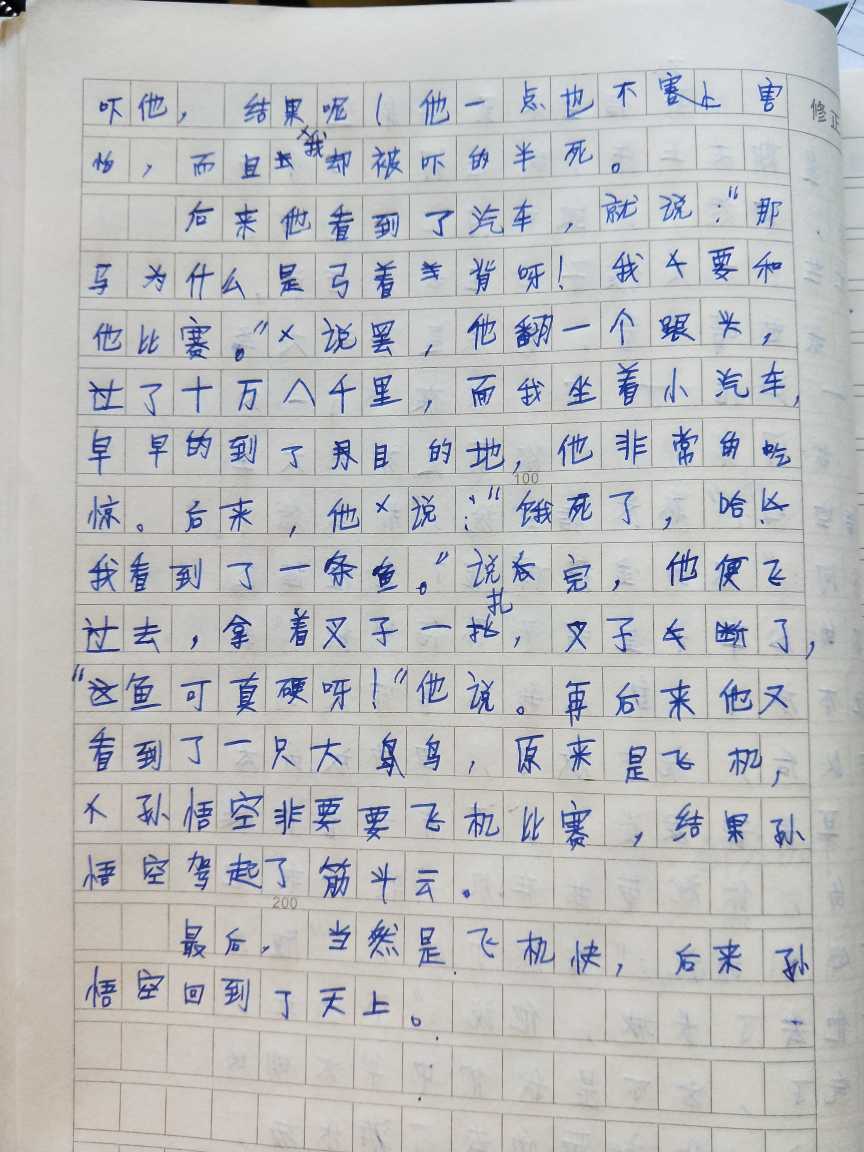 吓他，结果呢！他一点也不害
修正
怕，而且我却被吓的半死。
后来他看到了汽车，就说："那
马为什么是弓着背呀！我要和
他比赛。"说罢，他翻一个跟头，
过了十万八千里，而我坐着小汽车，
早早的到了目的地，他非常的吃
100
惊。后来，他说："饿死了，哈
我看到了一条鱼。"说完，他便飞
过去，拿着叉子一扎，叉子断了，
"这鱼可真硬呀！"他说。再后来他又
看到了一只大鸟，原来是飞机，
孙悟空非要要飞机比赛，结果孙
悟空驾起了筋斗云。
200
最后，当然是飞机快，后来孙
悟空回到了天上。